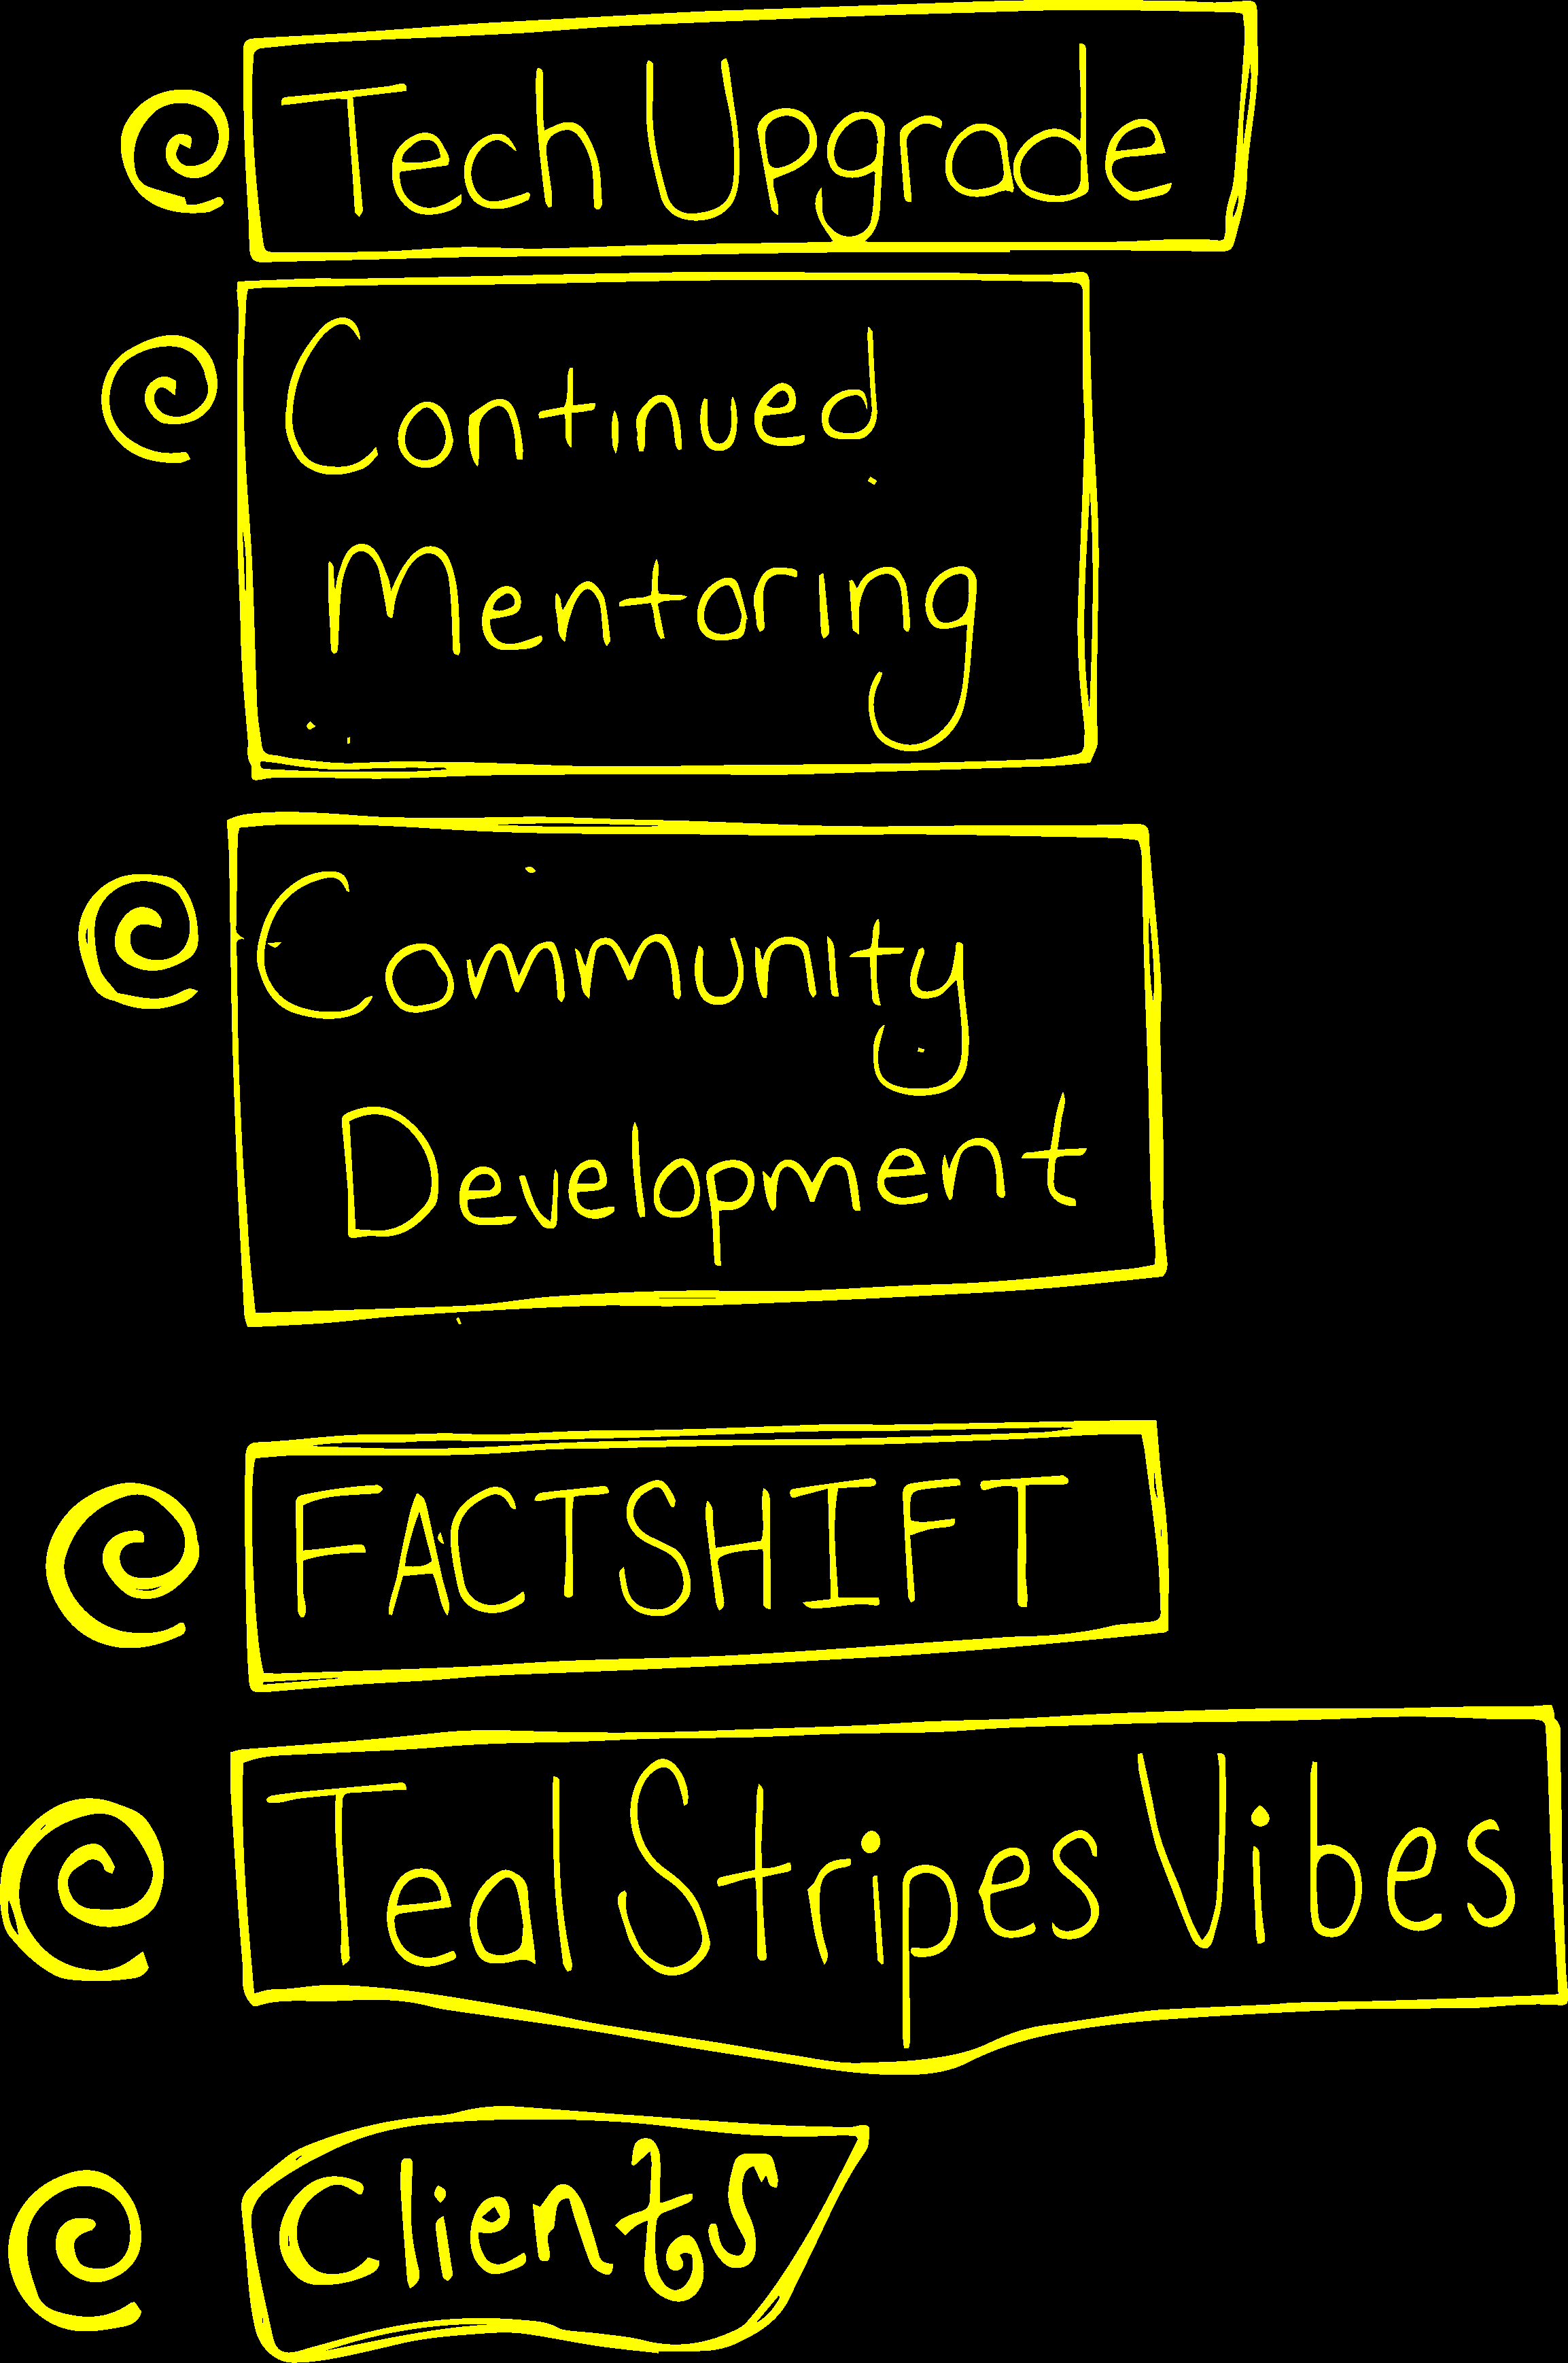 Tech Upgrade
Continued
Mentoring
Community
Development
FACTSHIFT
Teal Stripes Vibes
Clients